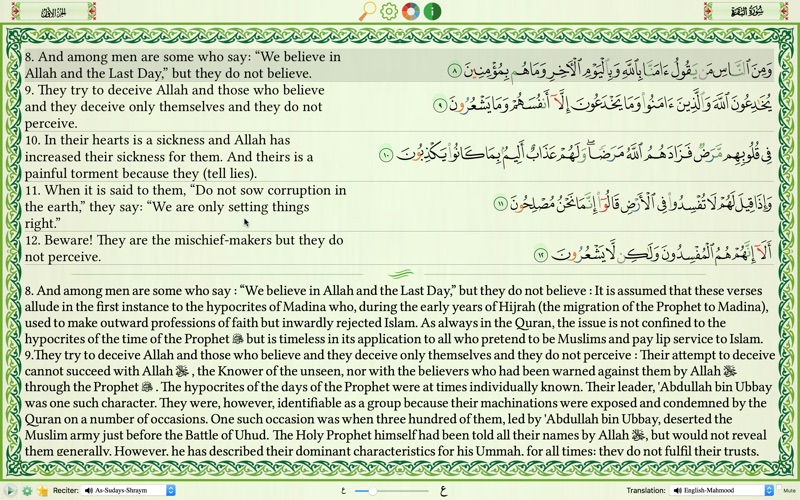 الجزء الأول
سورة البقرة
8. And among men are some who say: “We believe in
Allah and the Last Day,” but they do not believe.
وَمِنَ ٱلنَّاسِ مَن يَقُولُ ءَامَنَّا بِٱللَّهِ وَبِٱلْيَوْمِ ٱلْآخِرِ وَمَا هُم بِمُؤْمِنِينَ ٨
9. They try to deceive Allah and those who believe
and they deceive only themselves and they do not
perceive.
يُخَٰدِعُونَ ٱللَّهَ وَٱلَّذِينَ ءَامَنُوا۟ وَمَا يَخْدَعُونَ إِلَّآ أَنفُسَهُمْ وَمَا يَشْعُرُونَ ٩
10. In their hearts is a sickness and Allah has
increased their sickness for them. And theirs is a
painful torment because they (tell lies).
فِى قُلُوبِهِم مَّرَضٌ فَزَادَهُمُ ٱللَّهُ مَرَضًا ۖ وَلَهُمْ عَذَابٌ أَلِيمٌۢ بِمَا كَانُوا۟ يَكْذِبُونَ ١٠
11. When it is said to them, “Do not sow corruption in
the earth,” they say: “We are only setting things
right.”
وَإِذَا قِيلَ لَهُمْ لَا تُفْسِدُوا۟ فِى ٱلْأَرْضِ قَالُوٓا۟ إِنَّمَا نَحْنُ مُصْلِحُونَ ١١
12. Beware! They are the mischief-makers but they do
not perceive.
أَلَآ إِنَّهُمْ هُمُ ٱلْمُفْسِدُونَ وَلَٰكِن لَّا يَشْعُرُونَ ١٢
8. And among men are some who say : “We believe in Allah and the Last Day,” but they do not believe : It is assumed that these verses
allude in the first instance to the hypocrites of Madina who, during the early years of Hijrah (the migration of the Prophet to Madina),
used to make outward professions of faith but inwardly rejected Islam. As always in the Quran, the issue is not confined to the
hypocrites of the time of the Prophet ﷺ but is timeless in its application to all who pretend to be Muslims and pay lip service to Islam.
9.They try to deceive Allah and those who believe and they deceive only themselves and they do not perceive : Their attempt to deceive
cannot succeed with Allah , the Knower of the unseen, nor with the believers who had been warned against them by Allah
through the Prophet ﷺ . The hypocrites of the days of the Prophet were at times individually known. Their leader, 'Abdullah bin Ubbay
was one such character. They were, however, identifiable as a group because their machinations were exposed and condemned by the
Quran on a number of occasions. One such occasion was when three hundred of them, led by 'Abdullah bin Ubbay, deserted the
Muslim army just before the Battle of Uhud. The Holy Prophet himself had been told all their names by Allah , but would not reveal
them generally. However, he has described their dominant characteristics for his Ummah, for all times: they do not fulfil their trusts,
Reciter: As-Sudays-Shraym ع ع Translation: English-Mahmood Mute